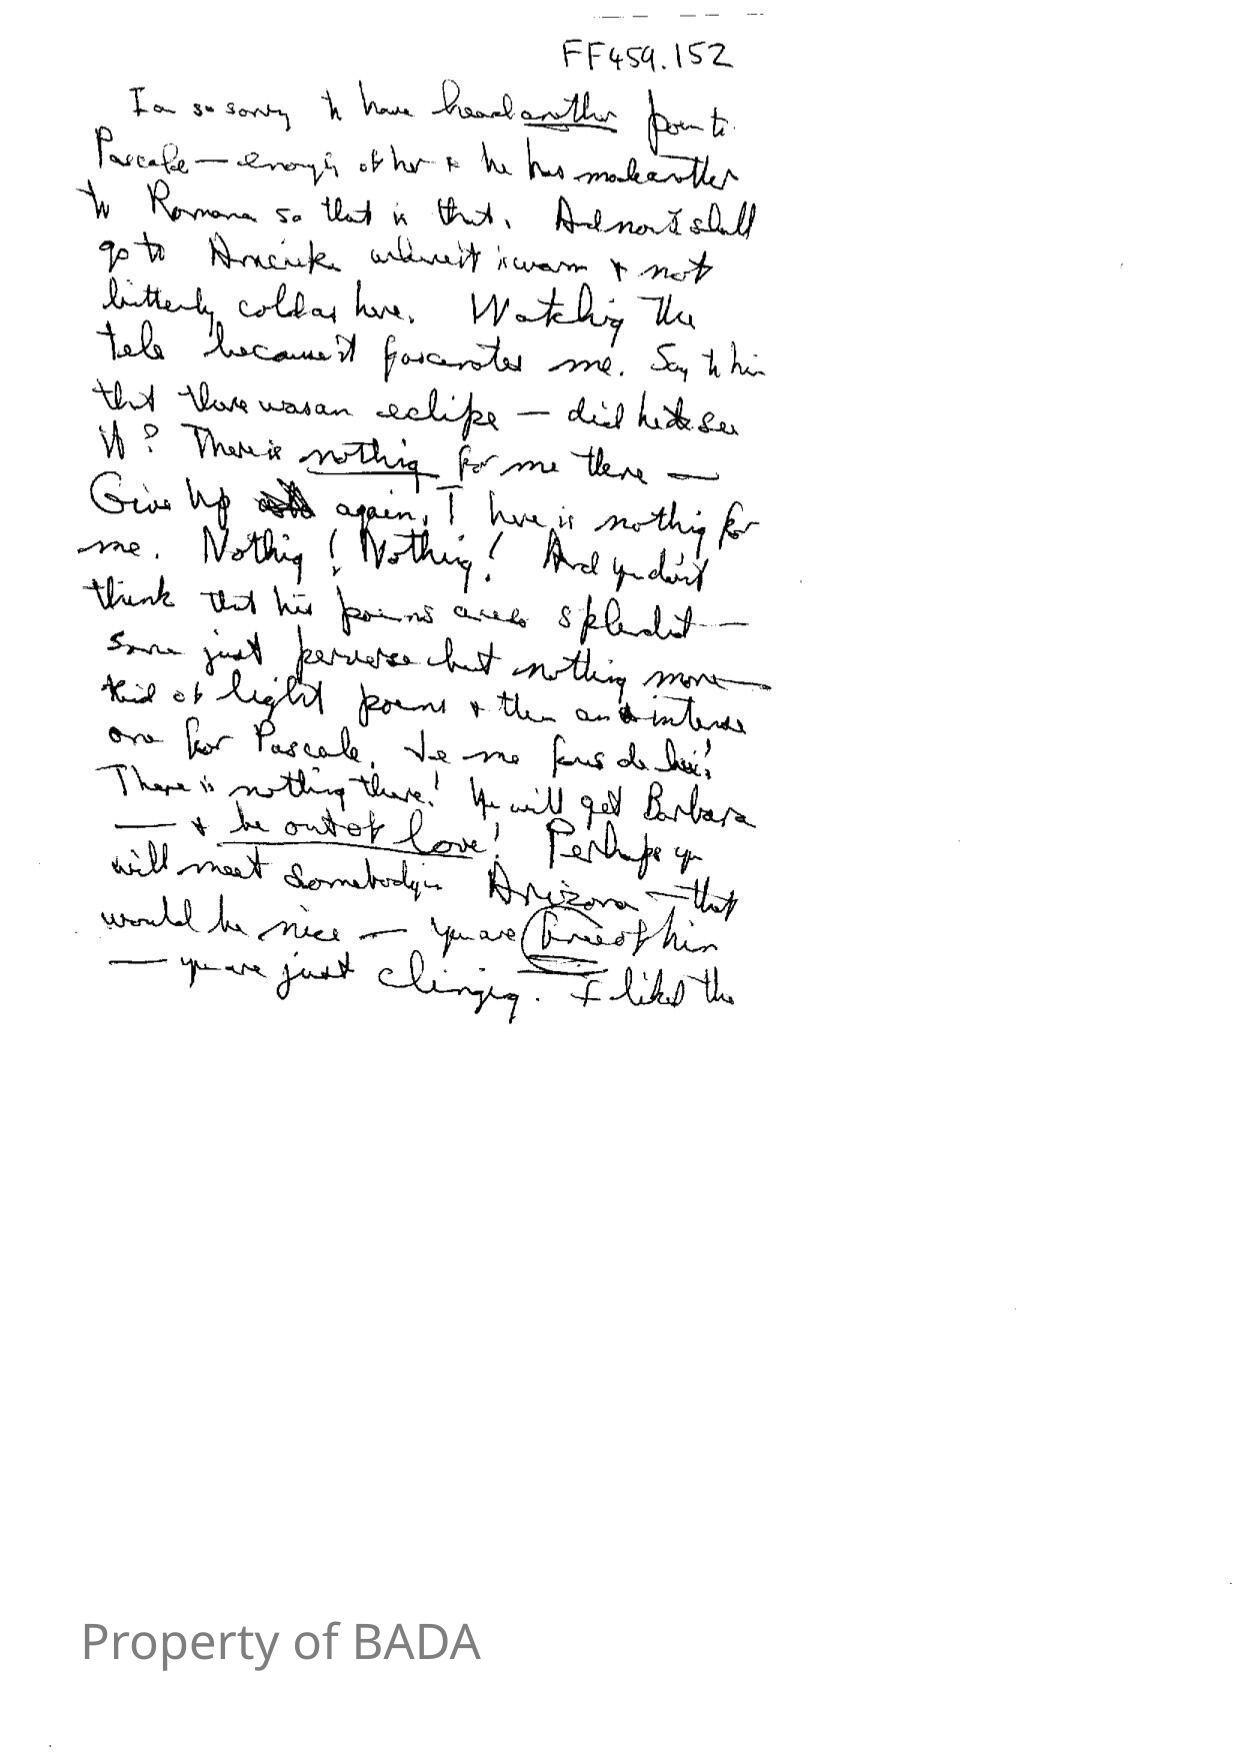 FF459.152
I am so sorry to have heard another poem to
Pascale — enough of her & he has made another
to Romana so that is that. And now I shall
go to America where it is warm & not
bitterly cold as here. Watching the
tele because it fascinates me. Say to him
that there was an eclipse — did he see
it? There is nothing for me there —
Give up again. There is nothing for
me. Nothing! Nothing! And you don't
think that his poems are so splendid —
some just perverse but nothing more —
kind of light poems & then an intense
one for Pascale. Je me fous de lui!
There is nothing there! You will get Barbara
— & be out of love! Perhaps you
will meet somebody in Arizona — that
would be nice — you are free of him
— you are just clinging. I liked the
Property of BADA